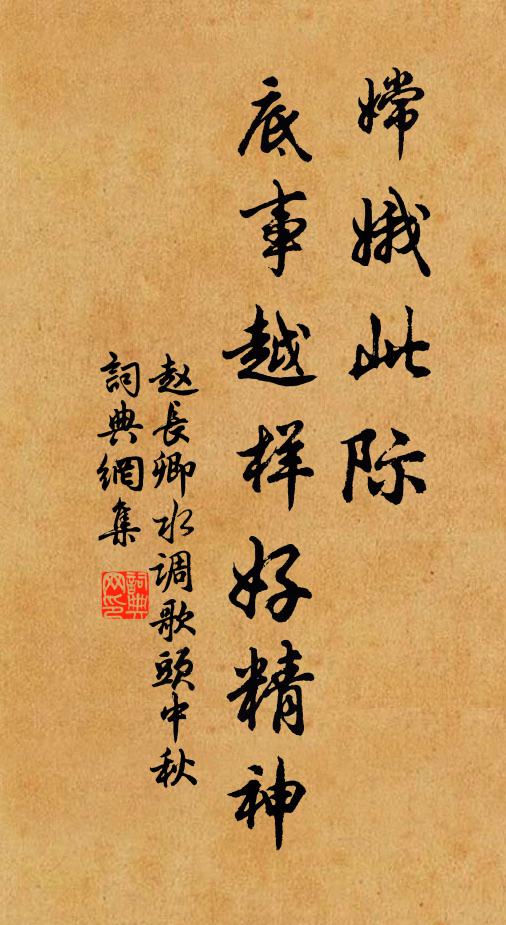 嫦娥此际
底事越样好精神
赵長卿水调歌頭中秋
詞典網集
詞典
网印